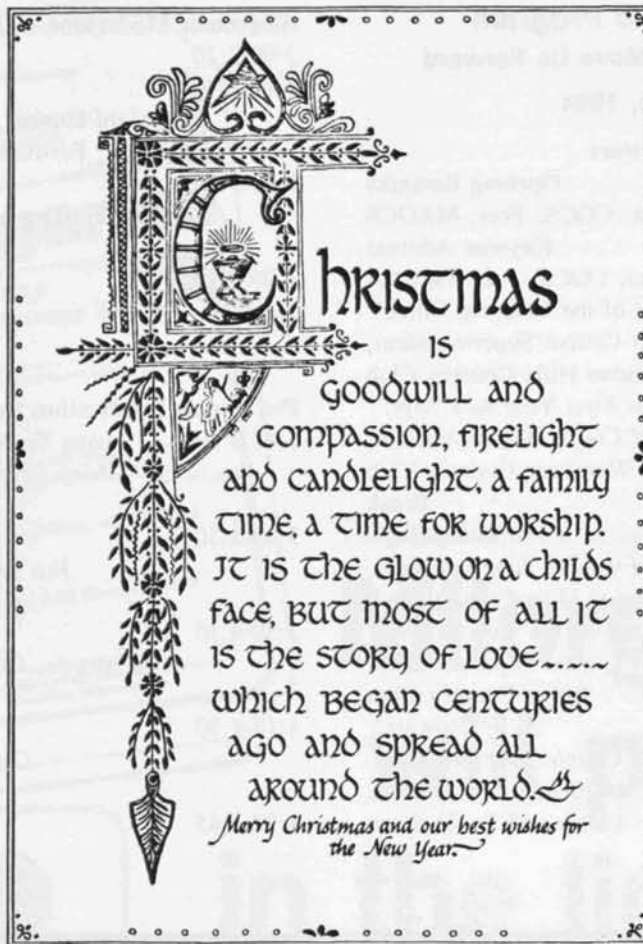 CHRISTMAS
IS
GOODWILL AND
COMPASSION, FIRELIGHT
AND CANDLELIGHT, A FAMILY
TIME, A TIME FOR WORSHIP.
IT IS THE GLOW ON A CHILDS
FACE, BUT MOST OF ALL IT
IS THE STORY OF LOVE.......
WHICH BEGAN CENTURIES
AGO AND SPREAD ALL
AROUND THE WORLD.
Merry Christmas and our best wishes for
the New Year.